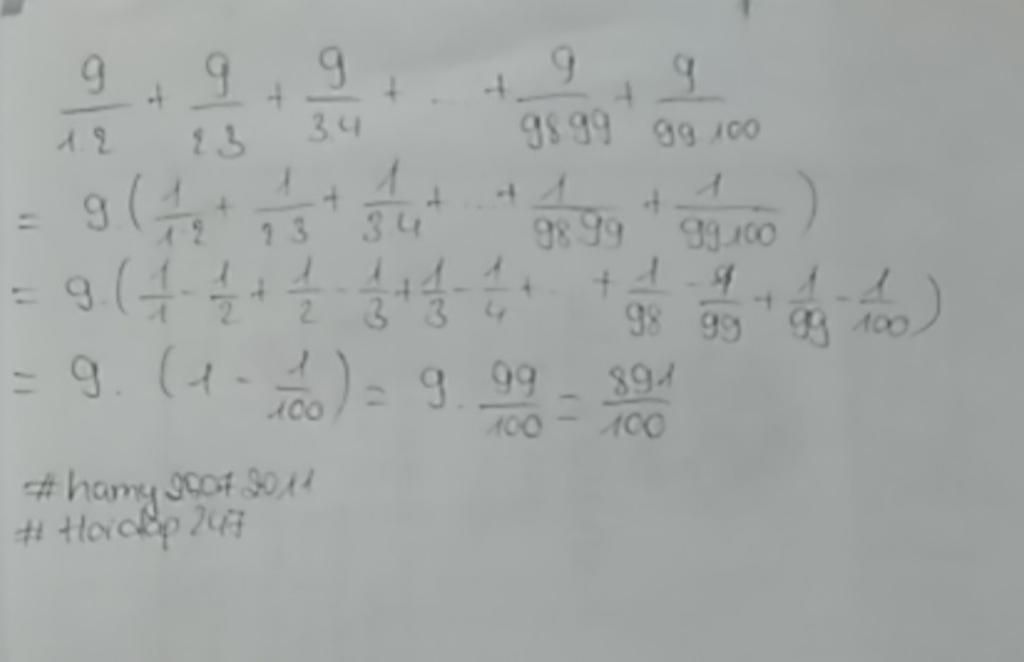 9/1.2 + 9/2.3 + 9/3.4 + ... + 9/98.99 + 9/99.100
= 9.(1/1.2 + 1/2.3 + 1/3.4 + ... + 1/98.99 + 1/99.100)
= 9.(1/1 - 1/2 + 1/2 - 1/3 + 1/3 - 1/4 + ... + 1/98 - 1/99 + 1/99 - 1/100)
= 9.(1 - 1/100) = 9.99/100 = 891/100
#hamy29072011
#Hoidap247